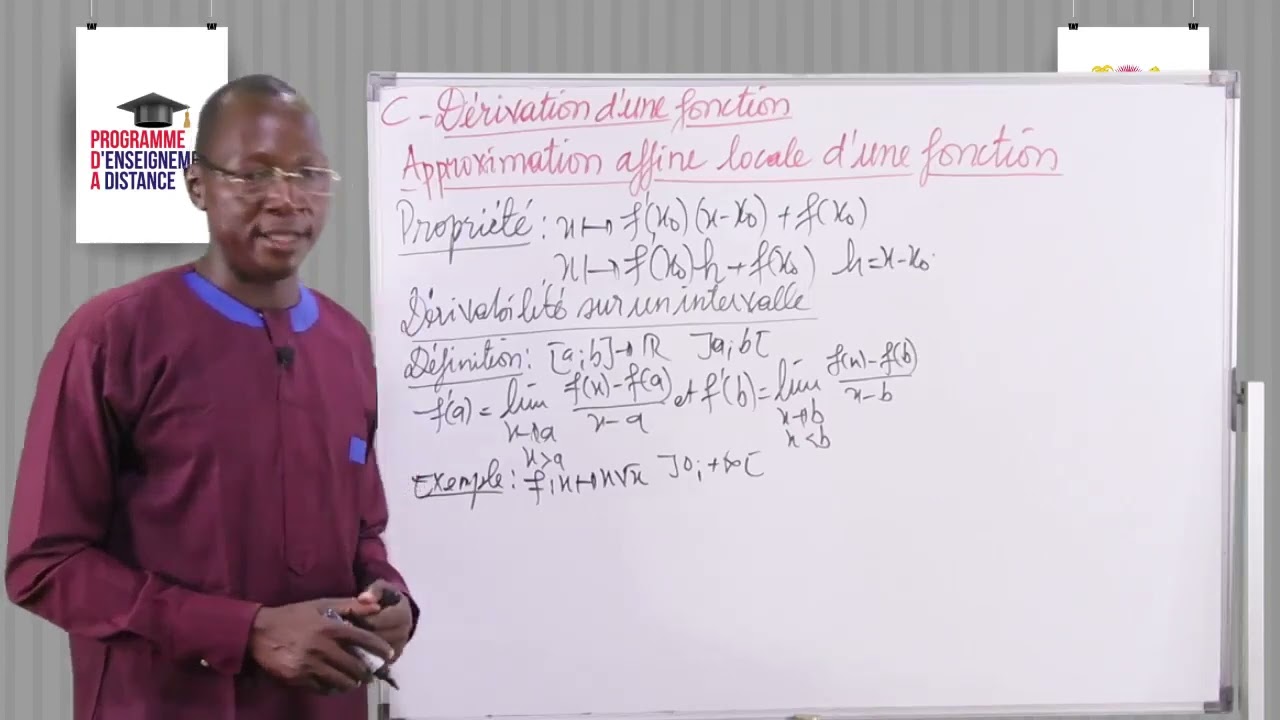 PROGRAMME
D'ENSEIGNEME
A DISTANCE
C - Dérivation d'une fonction
Approximation affine locale d'une fonction
Propriété : x ↦ f'(x₀)(x-x₀) + f(x₀)
x ↦ f'(x₀)h + f(x₀) h = x-x₀
Dérivabilité sur un intervalle
Définition : [a;b] → ℝ ]a;b[
f'(a) = lim f(x) - f(a) / x - a et f'(b) = lim f(x) - f(b) / x - b
x→a x→b
x>a x<b
Exemple : f: x ↦ x√x ]0;+∞[